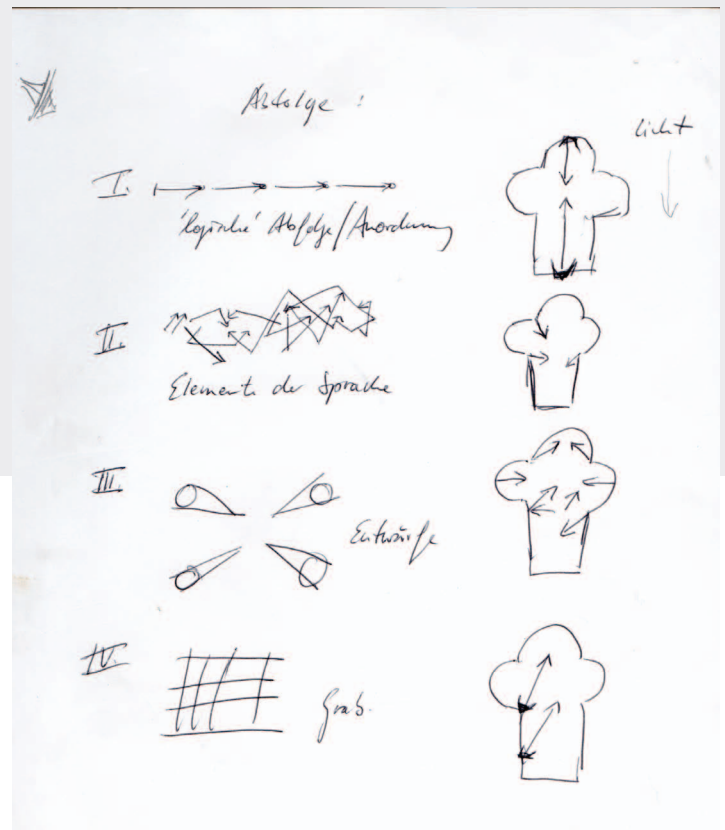 Abfolge :
Licht
I.
'logische' Abfolge/Anordnung
II.
Elemente der Sprache
III.
Entwürfe
IV.
Grab.